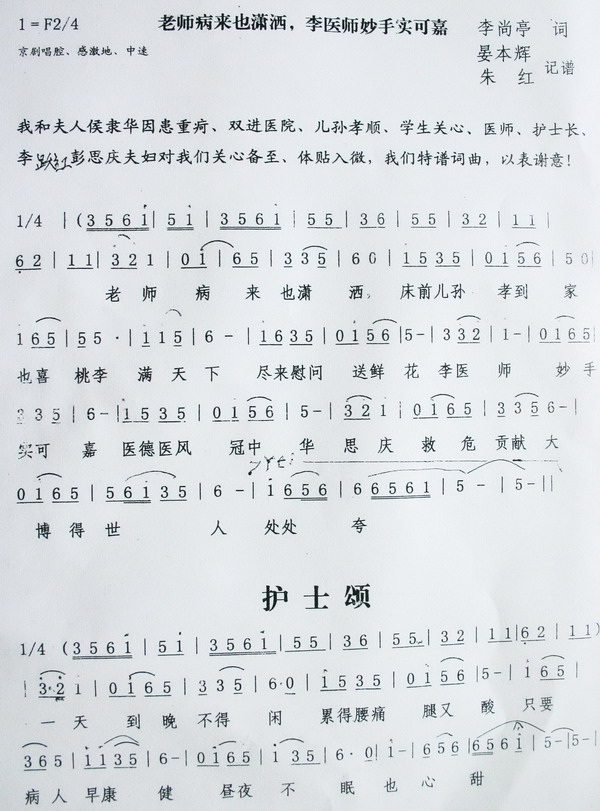 1=F2/4
老师病来也潇洒，李医师妙手实可嘉
李尚亭 词
京剧唱腔、感激地、中速
晏本辉
朱 红 记谱
我和夫人侯隶华因患重疴、双进医院、儿孙孝顺、学生关心、医师、护士长、
李跃红彭思庆夫妇对我们关心备至、体贴入微，我们特谱词曲，以表谢意！
1/4 |(3561|51|3561|55|36|55|32|11|
62|11|3 2 1 1|01|65|335|60|1535|0156|50|
老 师 病 来 也潇 洒，床前儿孙 孝到 家
165|55·|115|6-|1635|0156|5-|332|1-|0165|
也喜 桃李 满 天 下 尽来慰问 送鲜 花 李医 师 妙 手
335|6-|1535|0156|5-|321|0165|3356-|
实可 嘉 医德医风 冠中 华 思 庆 救 危 贡献 大
0165|56135|6-|01656|66561|5-|5-||
博 得 世 人 处处 夸
护士颂
1/4 (3561|51|3561|55|36|55|32|11|62|11)
|3·21|0165|335|6·0|1535|0156|5-|165|
一 天 到 晚 不得 闲 累得腰痛 腿又 酸 只要
365|1135|6-|0165|135|6·0|0165|656|6561|5-|5-|
病 人 早康 健 昼夜 不 眠 也 心 甜